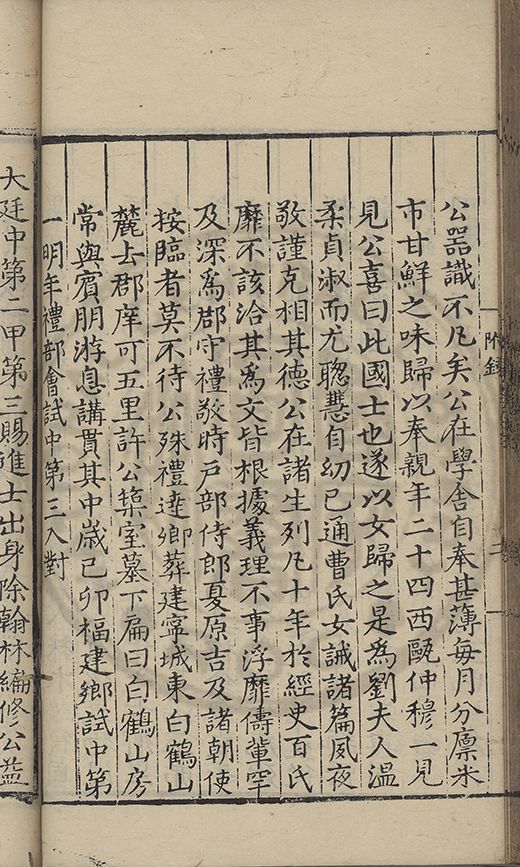 附錄
公器識不凡矣公在學舍自奉甚薄每月分廩米
市甘鮮之味歸以奉親年二十四西甌仲穆一見
見公喜曰此國士也遂以女歸之是爲劉夫人溫
柔貞淑而尤聦慧自幼已通曹氏女誡諸篇夙夜
敬謹克相其德公在諸生列凡十年於經史百氏
靡不該洽其爲文皆根據義理不事浮靡儔輩罕
及深爲郡守禮敬時戶部侍郎夏原吉及諸朝使
按臨者莫不待公殊禮達卿葬建寧城東白鶴山
麓去郡庠可五里許公築室墓下扁曰白鶴山房
常與賓朋游息講貫其中歲己卯福建鄉試中第
一明年禮部會試中第三入對
大廷中第二甲第三賜進士出身除翰林編修公益